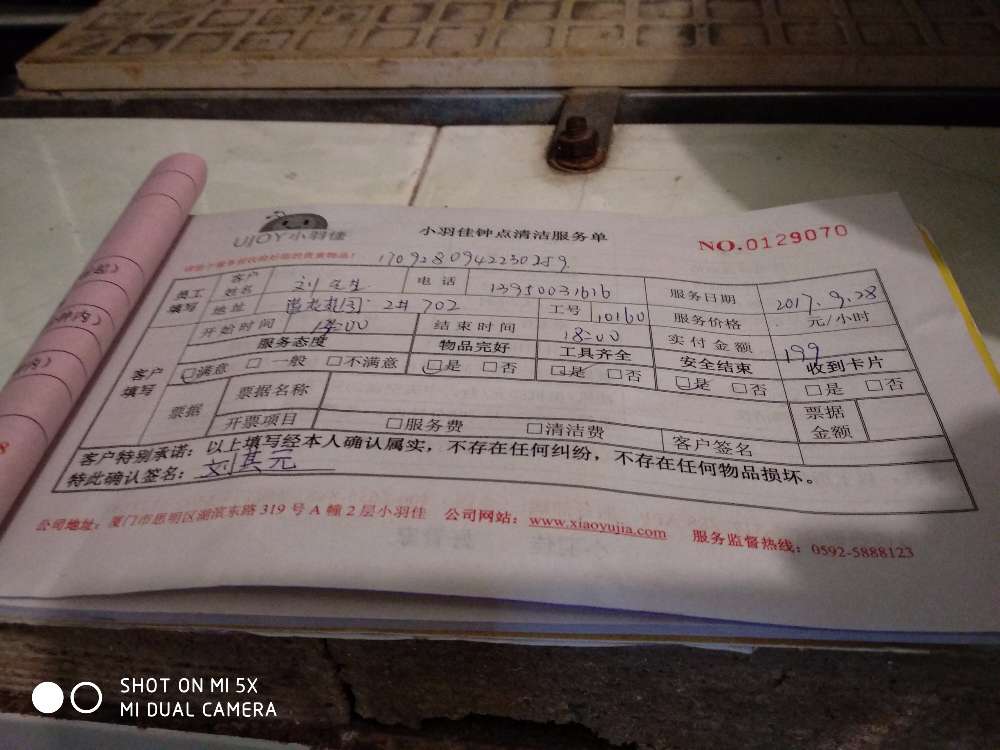 UJOY小羽佳
小羽佳钟点清洁服务单
NO.0129070
1709280942230259
员工填写 客户姓名 刘先生 电话 13950031616 服务日期 2017.9.28
地址 2# 702 工号 10160 服务价格 元/小时
开始时间 结束时间 18:00 实付金额 199
客户填写 服务态度 物品完好 工具齐全 安全结束 收到卡片
□满意 □一般 □不满意 □是 □否 □是 □否 □是 □否 □是 □否
票据 票据名称 票据金额
开票项目 □服务费 □清洁费 客户签名
客户特别承诺：以上填写经本人确认属实，不存在任何纠纷，不存在任何物品损坏。
特此确认签名：刘其元
公司地址：厦门市思明区湖滨东路319号A幢2层小羽佳 公司网站：www.xiaoyujia.com 服务监督热线：0592-5888123
SHOT ON MI 5X
MI DUAL CAMERA